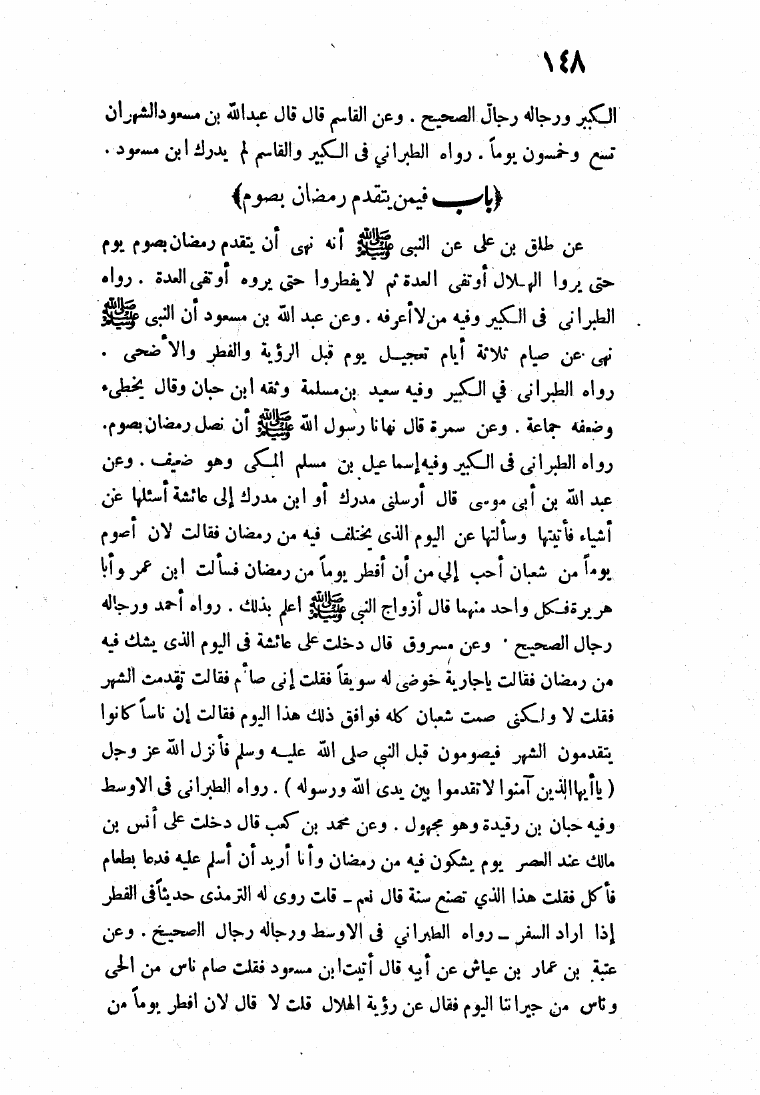 ١٤٨
الكبير ورجاله رجال الصحيح . وعن القاسم قال قال عبدالله بن مسعود الشهران
تسع وخمسون يوماً . رواه الطبراني فى الكبير والقاسم لم يدرك ابن مسعود .
﴿باب فيمن يتقدم رمضان بصوم﴾
عن طلق بن على عن النبى ﷺ أنه نهى أن يتقدم رمضان بصوم يوم
حتى يروا الهلال أو تفى العدة ثم لا يفطروا حتى يروه أو تفى العدة . رواه
الطبرانى فى الكبير وفيه من لا أعرفه . وعن عبد الله بن مسعود أن النبى ﷺ
نهى عن صيام ثلاثة أيام تعجيل يوم قبل الرؤية والفطر والأضحى .
رواه الطبرانى في الكبير وفيه سعيد بن مسلمة وثقه ابن حبان وقال يخطىء
وضعفه جماعة . وعن سمرة قال نهانا رسول الله ﷺ أن نصل رمضان بصوم.
رواه الطبرانى فى الكبير وفيه إسماعيل بن مسلم المكى وهو ضعيف . وعن
عبد الله بن أبى موسى قال أرسلنى مدرك أو ابن مدرك إلى عائشة أسئلها عن
أشياء فأتيتها وسألتها عن اليوم الذى يختلف فيه من رمضان فقالت لان أصوم
يوماً من شعبان أحب إلي من أن أفطر يوماً من رمضان فسألت ابن عمر وأبا
هريرة فكل واحد منهما قال أزواج النبى ﷺ اعلم بذلك . رواه أحمد ورجاله
رجال الصحيح . وعن مسروق قال دخلت على عائشة فى اليوم الذى يشك فيه
من رمضان فقالت ياجارية خوضى له سويقاً فقلت إنى صائم فقالت تقدمت الشهر
فقلت لا ولكنى صمت شعبان كله فوافق ذلك هذا اليوم فقالت إن ناساً كانوا
يتقدمون الشهر فيصومون قبل النبي صلى الله عليه وسلم فأنزل الله عز وجل
( ياأيها الذين آمنوا لا تقدموا بين يدى الله ورسوله ) . رواه الطبرانى فى الاوسط
وفيه حبان بن رقيدة وهو مجهول . وعن محمد بن كعب قال دخلت على أنس بن
مالك عند العصر يوم يشكون فيه من رمضان وأنا أريد أن أسلم عليه فدعا بطعام
فأكل فقلت هذا الذي تصنع سنة قال نعم ــ قلت روى له الترمذى حديثاً فى الفطر
إذا اراد السفر ــ رواه الطبراني فى الاوسط ورجاله رجال الصحيح . وعن
عتبة بن عمار بن عياش عن أبيه قال أتيت ابن مسعود فقلت صام ناس من الحى
وناس من جيراننا اليوم فقال عن رؤية الهلال قلت لا قال لان افطر يوماً من